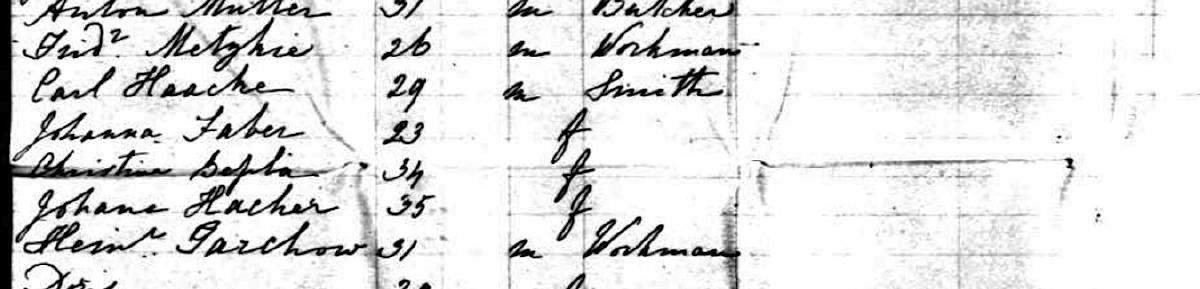 Anton Müller 31 m Butcher
Fried<sup>r</sup>. 26 m Workman
Carl Haacke 29 m Smith
Johanna Faber 23 f
Christine 34 f
Johane Hacker 35 f
Heinr. Garchow 31 m Workman